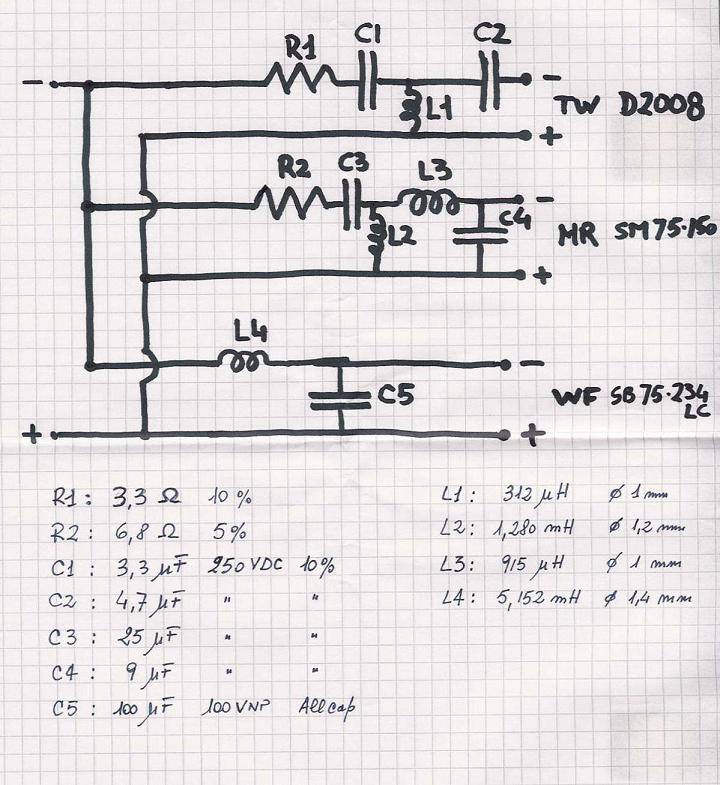 R1 C1 C2
- -
L1 TW D2008
+
R2 C3 L3
-
L2 C4 MR SM75.150
+
L4
-
C5 WF SB75.234
LC
+ +
R1 : 3,3 Ω 10 %
R2 : 6,8 Ω 5 %
C1 : 3,3 µF 250 VDC 10%
C2 : 4,7 µF " "
C3 : 25 µF " "
C4 : 9 µF " "
C5 : 100 µF 100 VNP All cap
L1 : 312 µH ø 1 mm
L2 : 1,280 mH ø 1,2 mm
L3 : 915 µH ø 1 mm
L4 : 5,152 mH ø 1,4 mm